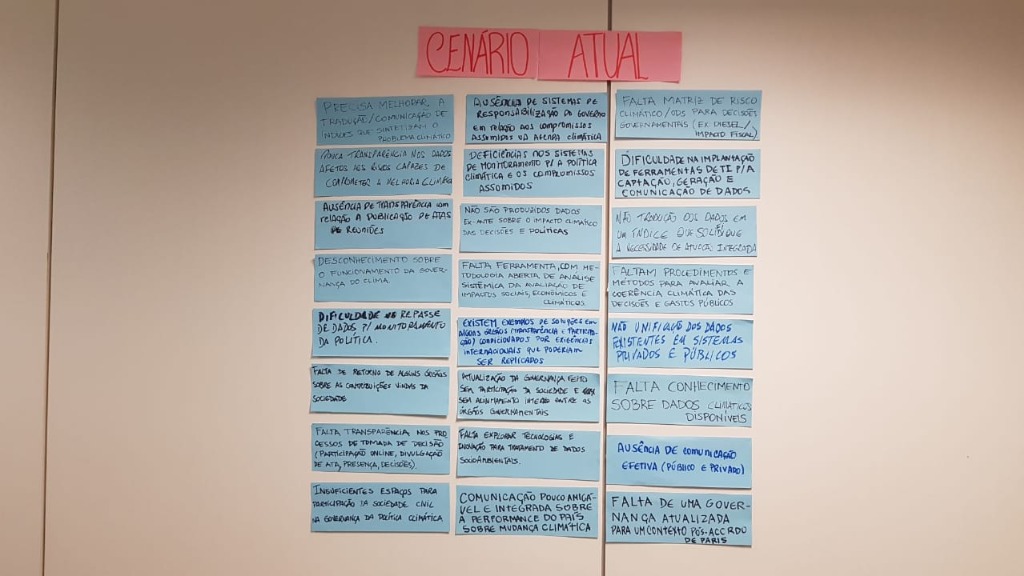 CENÁRIO ATUAL
PRECISA MELHORAR A
TRADUÇÃO/COMUNICAÇÃO DE
ÍNDICES QUE SINTETIZAM O
PROBLEMA CLIMÁTICO
POUCA TRANSPARÊNCIA NOS DADOS
AFETOS AOS RISCOS CAPAZES DE
COMPROMETER A MELHORIA CLIMÁTICA
AUSÊNCIA DE TRANSPARÊNCIA COM
RELAÇÃO A PUBLICAÇÃO DE ATAS
DE REUNIÕES
DESCONHECIMENTO SOBRE
O FUNCIONAMENTO DA GOVER-
NANÇA DO CLIMA.
DIFICULDADE NO REPASSE
DE DADOS P/ MONITORAMENTO
DA POLÍTICA.
FALTA DE RETORNO DE ALGUNS ÓRGÃOS
SOBRE AS CONTRIBUIÇÕES VINDAS DA
SOCIEDADE
FALTA TRANSPARÊNCIA NOS PRO
CESSOS DE TOMADA DE DECISÃO
(PARTICIPAÇÃO ONLINE, DIVULGAÇÃO
DE ATA, PRESENÇA, DECISÕES).
INSUFICIENTES ESPAÇOS PARA
PARTICIPAÇÃO DA SOCIEDADE CIVIL
NA GOVERNANÇA DA POLÍTICA CLIMÁTICA
AUSÊNCIA DE SISTEMAS DE
RESPONSABILIZAÇÃO DO GOVERNO
EM RELAÇÃO AOS COMPROMISSOS
ASSUMIDOS NA AGENDA CLIMÁTICA
DEFICIÊNCIAS NOS SISTEMAS
DE MONITORAMENTO P/ A POLÍTICA
CLIMÁTICA E OS COMPROMISSOS
ASSUMIDOS
NÃO SÃO PRODUZIDOS DADOS
EX-ANTE SOBRE O IMPACTO CLIMÁTICO
DAS DECISÕES E POLÍTICAS
FALTA FERRAMENTA, COM ME-
TODOLOGIA ABERTA DE ANÁLISE
SISTÊMICA DA AVALIAÇÃO DE
IMPACTOS SOCIAIS, ECONÔMICOS E
CLIMÁTICOS.
EXISTEM EXEMPLOS DE SOLUÇÕES EM
ALGUNS ÓRGÃOS (TRANSPARÊNCIA E PARTICIPA-
ÇÃO) CONDICIONADOS POR EXIGÊNCIAS
INTERNACIONAIS QUE PODERIAM
SER REPLICADOS
ATUALIZAÇÃO DA GOVERNANÇA FEITO
SEM PARTICIPAÇÃO DA SOCIEDADE E
SEM ALINHAMENTO INTERNO ENTRE OS
ÓRGÃOS GOVERNAMENTAIS
FALTA EXPLORAR TECNOLOGIAS E
INOVAÇÃO PARA TRATAMENTO DE DADOS
SOCIOAMBIENTAIS.
COMUNICAÇÃO POUCO AMIGÁ-
VEL E INTEGRADA SOBRE
A PERFORMANCE DO PAÍS
SOBRE MUDANÇA CLIMÁTICA
FALTA MATRIZ DE RISCO
CLIMÁTICO/ODS PARA DECISÕES
GOVERNAMENTAIS (EX. DIESEL/
IMPACTO FISCAL)
DIFICULDADE NA IMPLANTAÇÃO
DE FERRAMENTAS DE TI P/A
CAPTAÇÃO, GERAÇÃO E
COMUNICAÇÃO DE DADOS
NÃO TRADUÇÃO DOS DADOS EM
UM ÍNDICE QUE SOLIDIFIQUE
A NECESSIDADE DE ATUAÇÃO INTEGRADA
FALTAM PROCEDIMENTOS E
MÉTODOS PARA AVALIAR A
COERÊNCIA CLIMÁTICA DAS
DECISÕES E GASTOS PÚBLICOS
NÃO UNIFICAÇÃO DOS DADOS
EXISTENTES EM SISTEMAS
PRIVADOS E PÚBLICOS
FALTA CONHECIMENTO
SOBRE DADOS CLIMÁTICOS
DISPONÍVEIS
AUSÊNCIA DE COMUNICAÇÃO
EFETIVA (PÚBLICO E PRIVADO)
FALTA DE UMA GOVER-
NANÇA ATUALIZADA
PARA UM CONTEXTO PÓS-ACORDO
DE PARIS